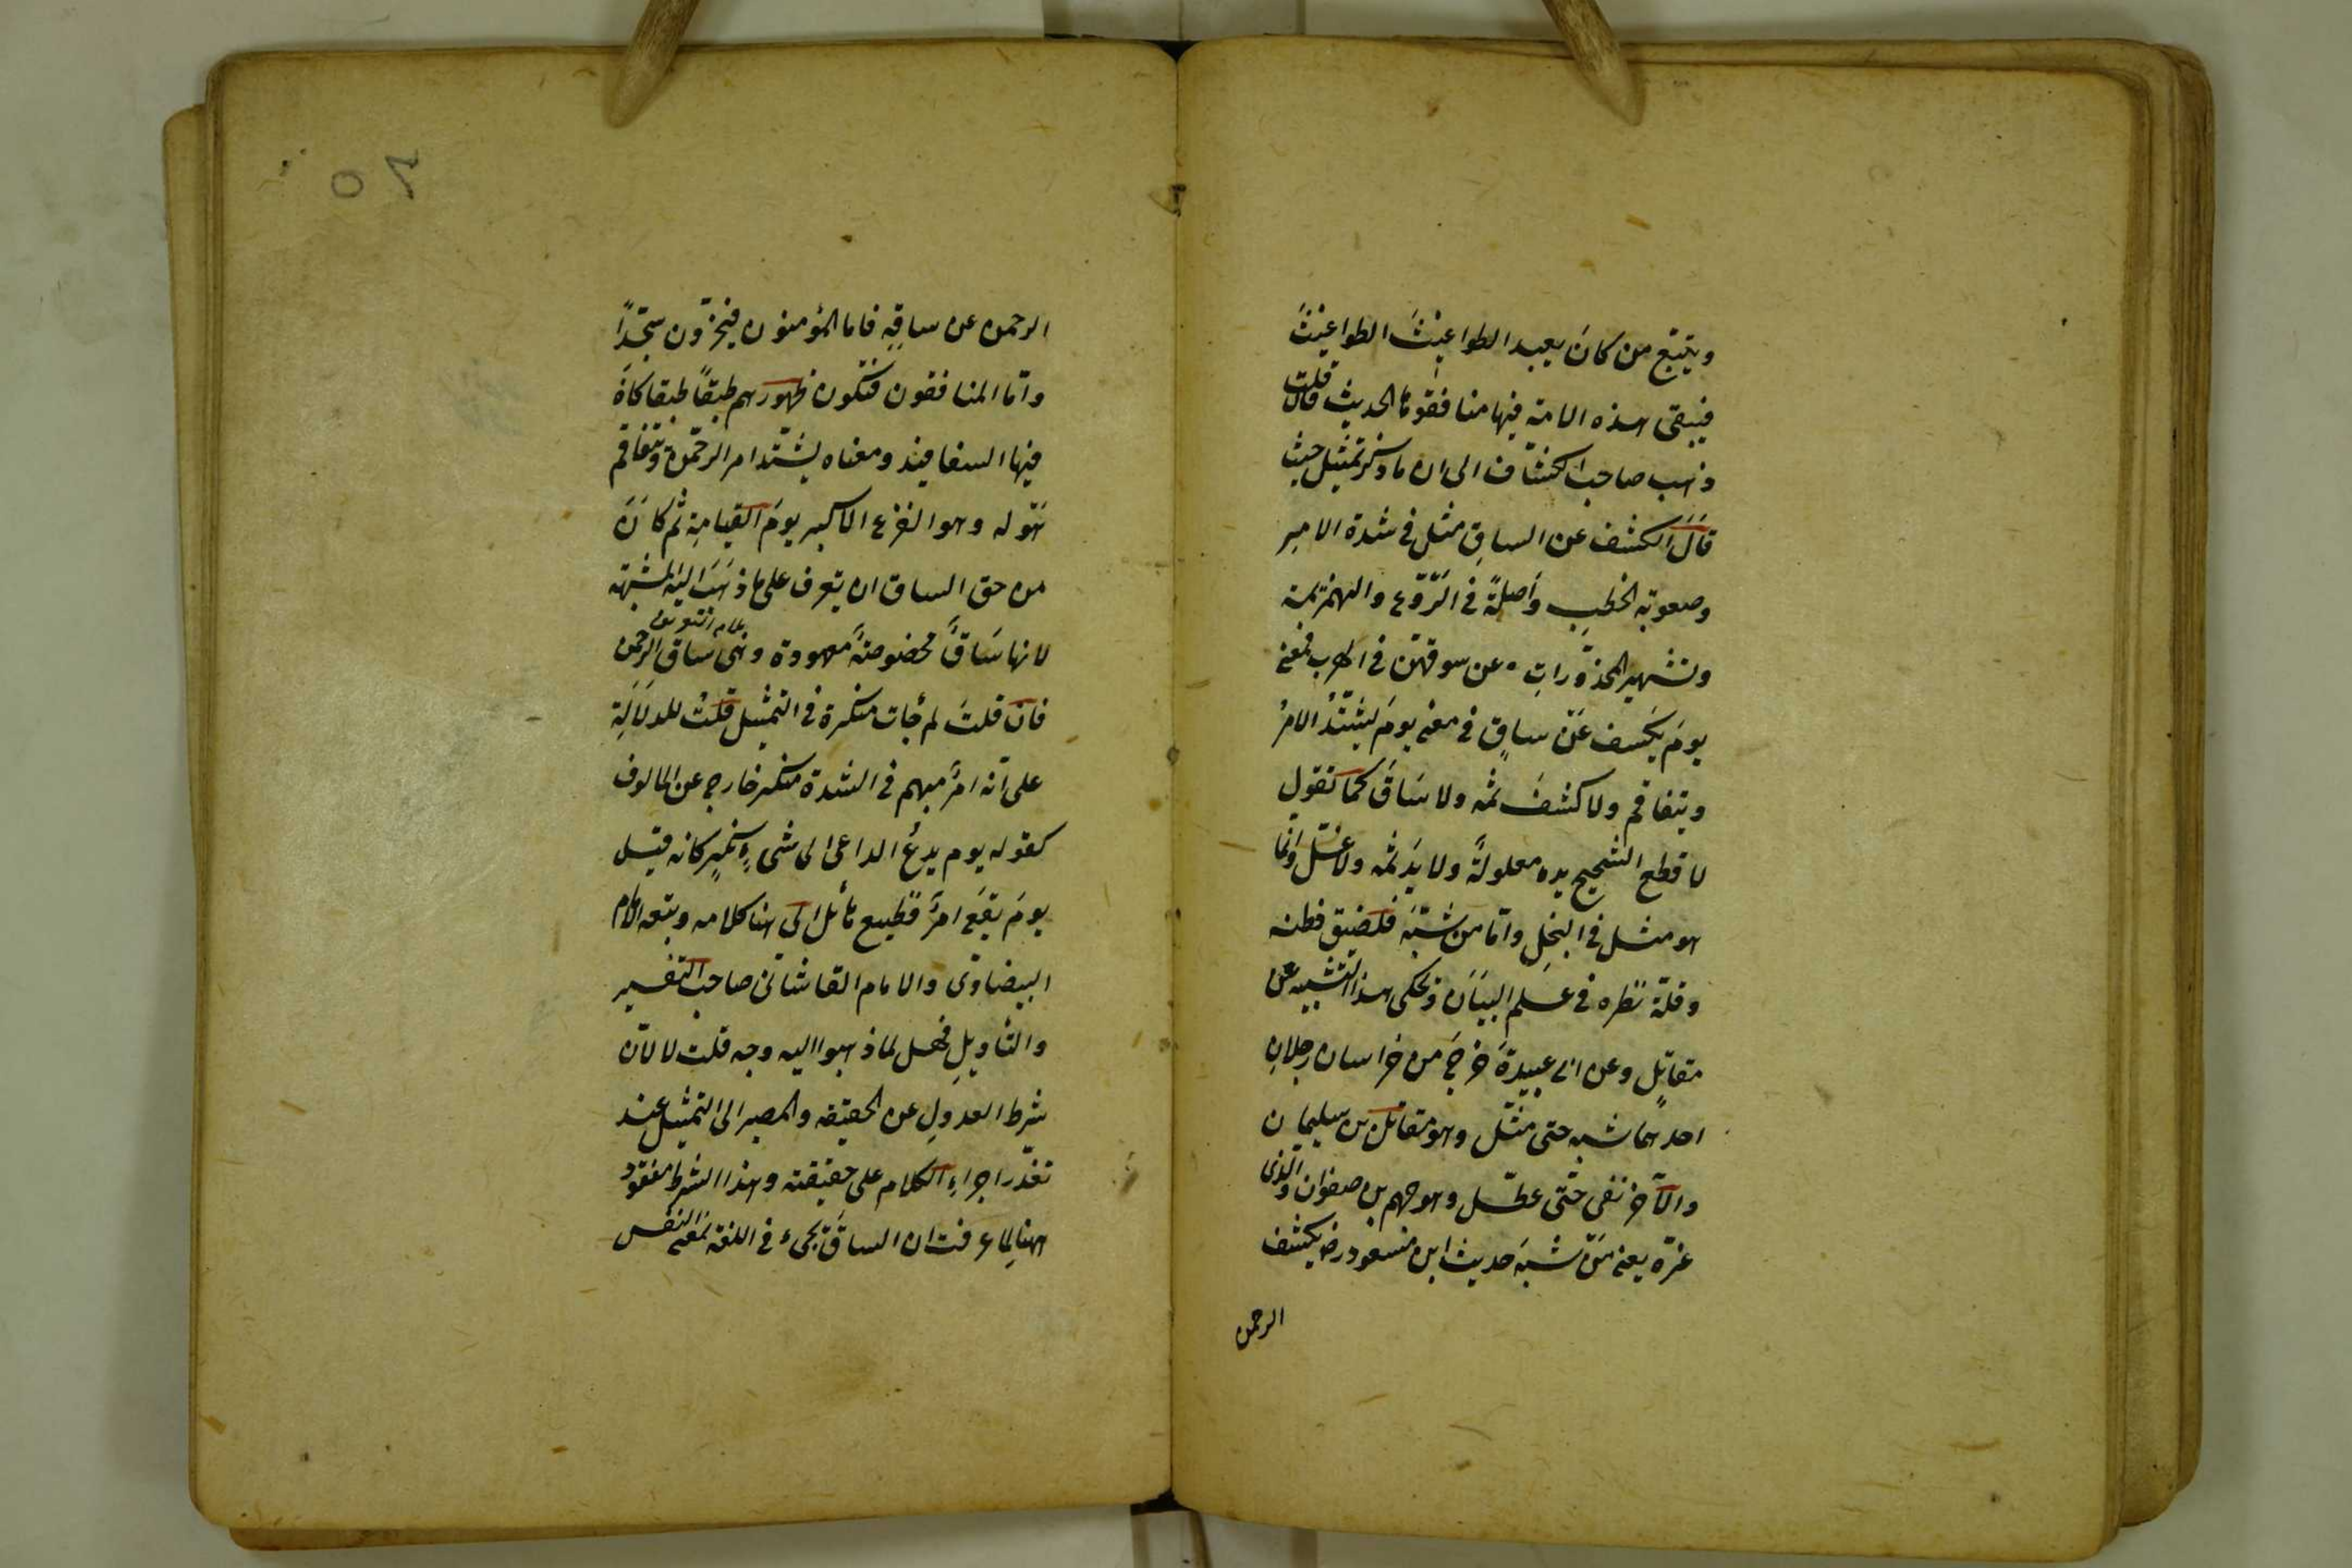 ويتبع من كان يعبد الطواغيت الطواغيت
فيبقى هذه الامة فيها منافقوها الحديث قلت قال
ذهب صاحب الكشاف الى ان ما ذكر تمثيل حيث
قال الكشف عن الساق مثل في شدة الامر
وصعوبة الخطب واصله في الروع والهزيمة
وتشهير المخدرات عن سوقهن في الهرب فمعنى
يوم يكشف عن ساق في معنى يوم يشتد الامر
ويتفاقم ولا كشف ثمه ولا ساق كما تقول
لاقطع الشحيح يده مغلولة ولا يد ثمه ولا غل وانما
هو مثل في البخل واما من شبه فلضيق فطنه
وقلة نظره في علم البيان ويحكى هذا التشبيه عن
مقاتل وعن ابى عبيدة خرج من خراسان رجلان
احدهما شبه حتى مثل وهو مقاتل بن سليمان
والآخر نفى حتى عطل وهو جهم بن صفوان والذى
غره يعنى من شبه حديث ابن مسعود رض يكشف
الرحمن
الرحمن عن ساقه فاما المؤمنون فيخرون سجدا
واما المنافقون فتكون ظهورهم طبقا طبقا كان
فيها السفافيد ومعناه يشتد امر الرحمن ويتفاقم
هوله وهو الفزع الاكبر يوم القيامة ثم كان
من حق الساق ان يعرف على ما ذهب اليه المشبهة
لانها ساق مخصوصة معهودة وهى ساق الرحمن
فان قلت لم جات منكرة في التمثيل قلت للدلالة
على انه امر مبهم في الشدة منكر خارج عن المالوف
كقوله يوم يدع الداعى الى شىء نكر كانه قيل
يوم يقع امر فظيع هائل الى هنا كلامه وتبعه الامام
البيضاوى والامام القاشانى صاحب التفسير
والتأويل فهل لما ذهبوا اليه وجه قلت لا لان
شرط العدول عن الحقيقة والمصير الى التمثيل عند
تعذر اجراء الكلام على حقيقته وهذا الشرط مفقود
ههنا لما عرفت ان الساق تجىء في اللغة بمعنى النفس